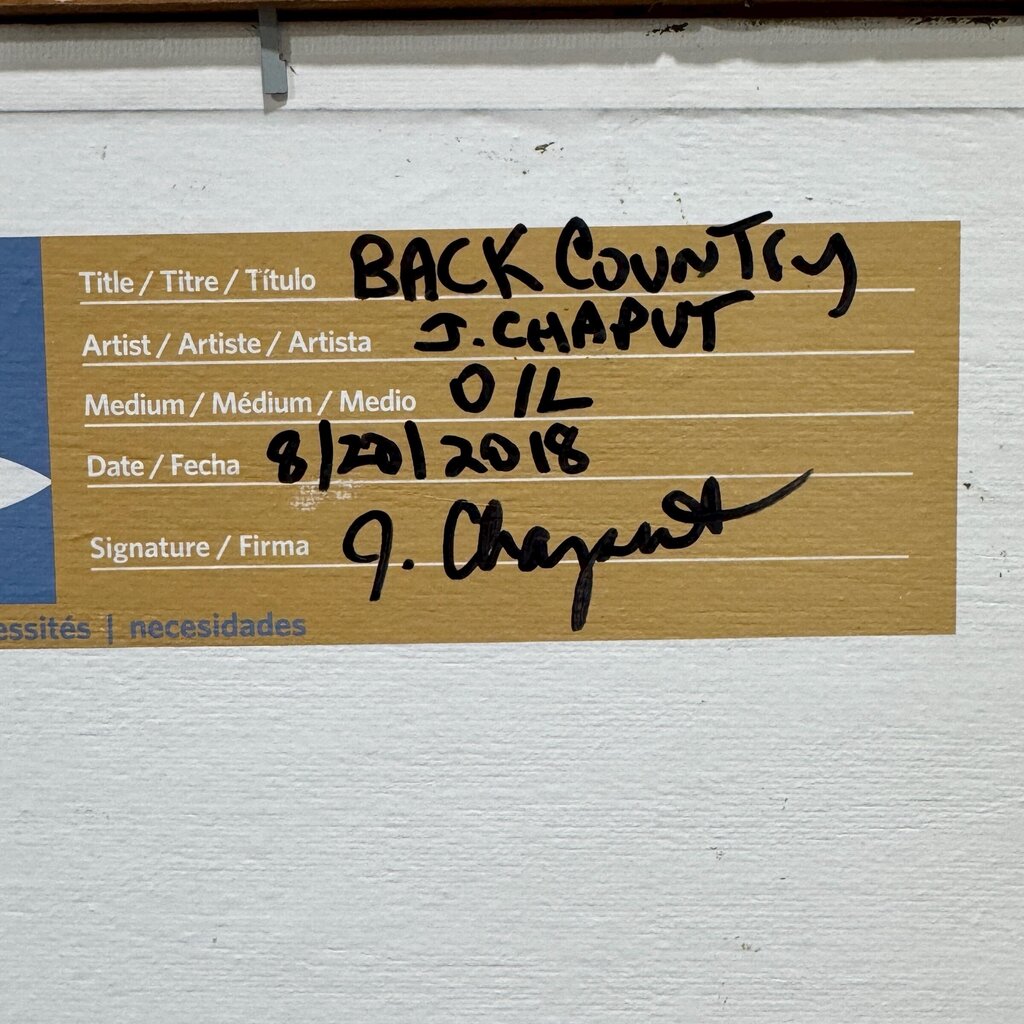 Title / Titre / Título BACK COUNTRY
Artist / Artiste / Artista J. CHAPUT
Medium / Médium / Medio OIL
Date / Fecha 8/20/2018
Signature / Firma J. Chaput
essités | necesidades